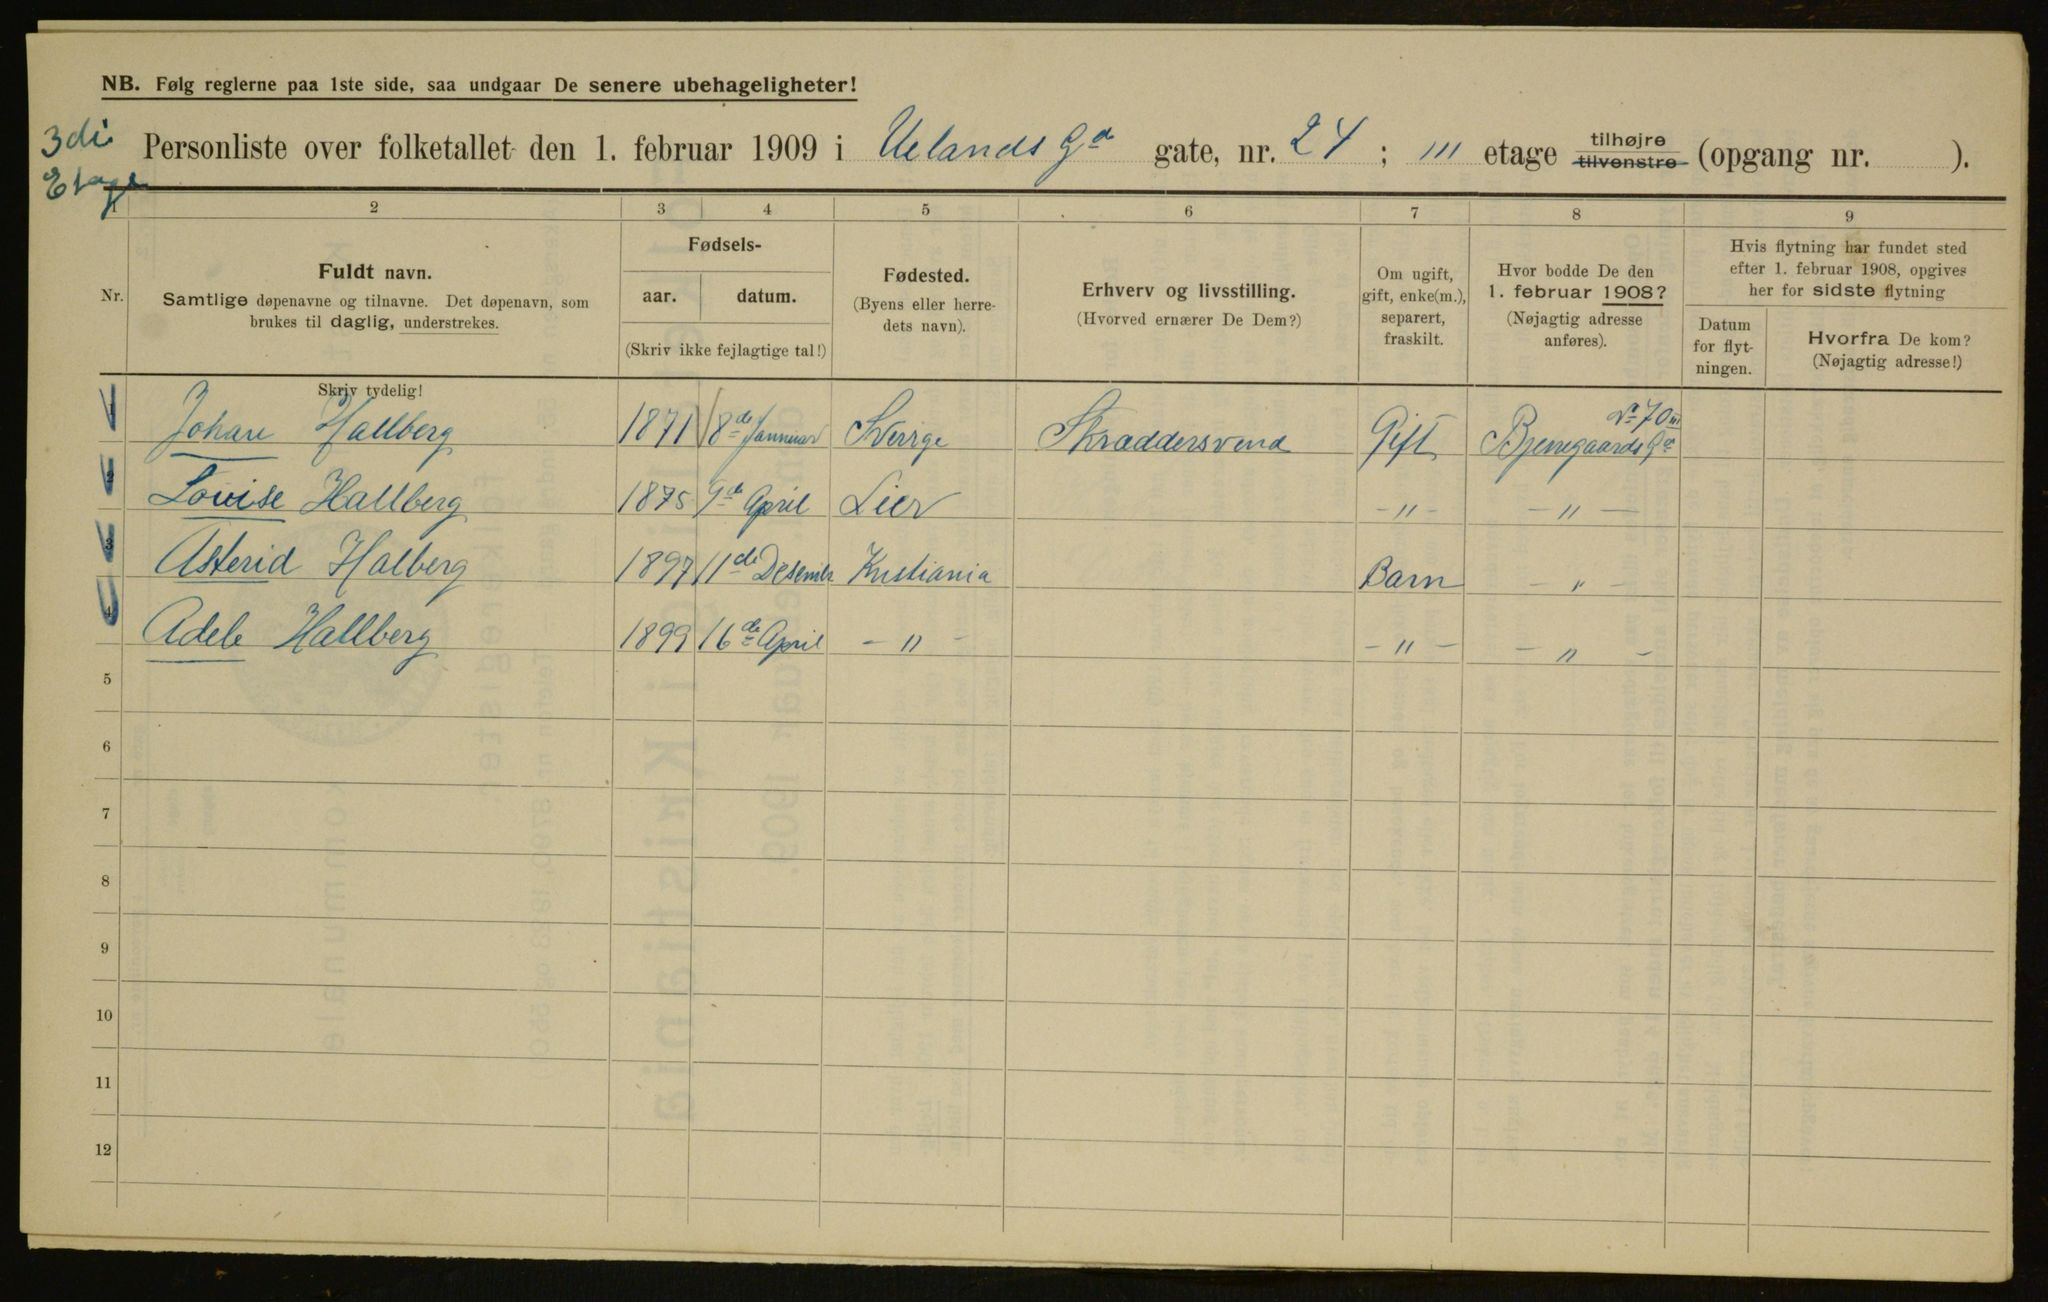 NB. Følg reglerne paa 1ste side, saa undgaar De senere ubehageligheter!
3di Etage
Personliste over folketallet den 1. februar 1909 i Uelands Gd gate, nr. 24 ; III etage tilhøjre tilvenstre (opgang nr. ).
1 2 3 4 5 6 7 8 9
Nr.
Fuldt navn.
Samtlige døpenavne og tilnavne. Det døpenavn, som
brukes til daglig, understrekes.
Skriv tydelig!
Fødsels-
aar. datum.
(Skriv ikke fejlagtige tal!)
Fødested.
(Byens eller herre-
dets navn).
Erhverv og livsstilling.
(Hvorved ernærer De Dem?)
Om ugift,
gift, enke(m.),
separert,
fraskilt.
Hvor bodde De den
1. februar 1908?
(Nøjagtig adresse
anføres).
Hvis flytning har fundet sted
efter 1. februar 1908, opgives
her for sidste flytning
Datum
for flyt-
ningen.
Hvorfra De kom?
(Nøjagtig adresse!)
No 70 III
1 Johan Hallberg 1871 8de Januar Sverrge Skræddersvend Gift Bjerregaards Gd
2 Louise Hallberg 1875 9de April Lier - " - - " -
3 Asterid Halberg 1897 11de Desember Kristiania Barn - " -
4 Adele Hallberg 1899 16de April - " - - " - - " -
5
6
7
8
9
10
11
12